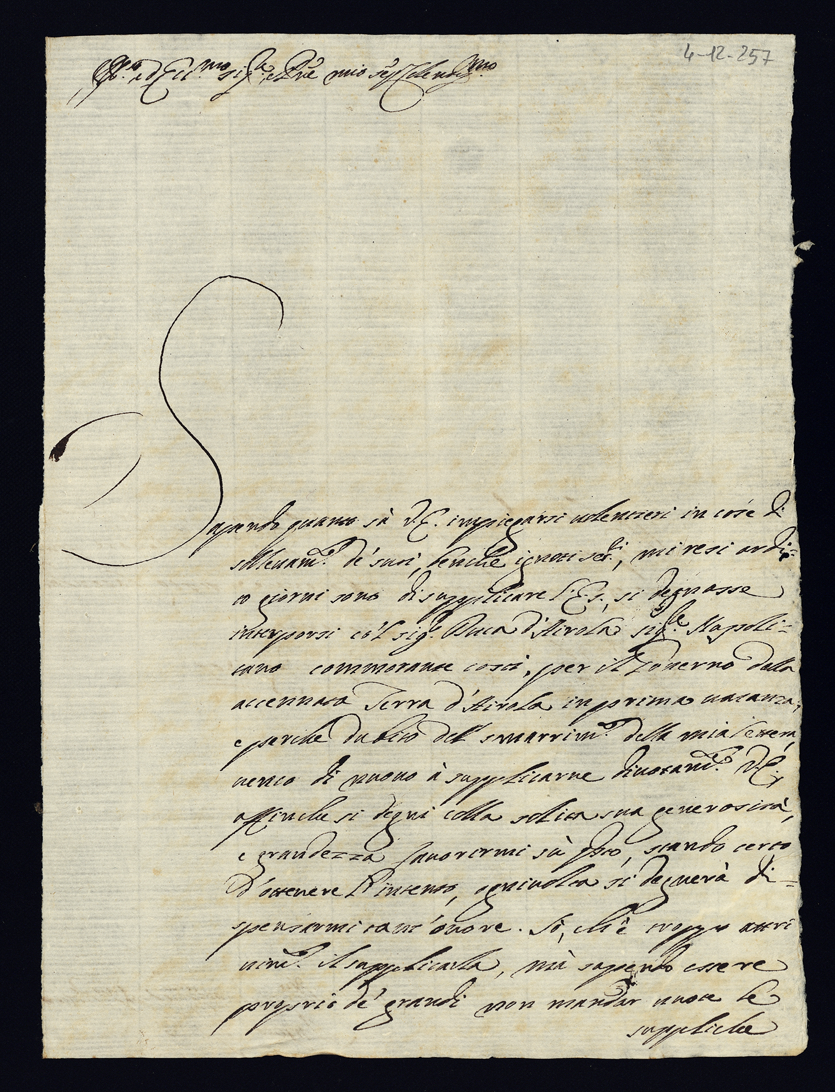 4-12-257
Ill.mo ed Ecc.mo Sig.re e P.ne mio Sig.r Colend.mo
Sapendo quanto sà V.E. impiegarsi volentieri in cose di
sollevam.to de' suoi, benche ignoti ser.ri, mi resi ardi=
to giorni sono di supplicare l'E.S. si degnasse
interporsi co'l sig.r Duca d'Airola sig.re Napoli=
tano commorante costì, per il Governo della
accennata Terra d'Airola in prima vacanza,
e perche dubito del smarrim.to della mia lettera,
vengo di nuovo à supplicarne divotam.te V.E.
affinche si degni colla solita sua generosità,
e grandezza favorirmi sù q.sto, stando certo
d'ottenere l'intento, ogni volta si degnerà di=
spensarmi tant'onore. Sò, ch'è troppo
il supplicarla, mà sapendo essere
proprio de' grandi non mandar vuote le
suppliche